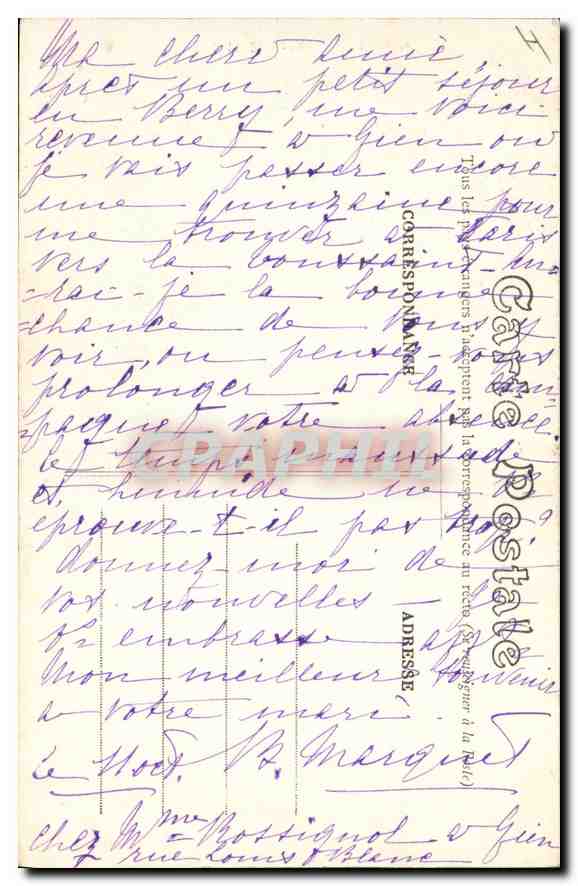 Ma chere amie,
apres un petit séjour
en Berry, me voici
revenue à Gien où
je vais passer encore
une quinzaine pour
me trouver à Paris
vers la Toussaint - au-
-rai-je la bonne
chance de vous y
voir, ou pensez-vous
prolonger à la cam-
-pagne votre absence.
Le temps maussade
et humide ne
eprouve-t-il pas trop?
donnez-moi de
vos nouvelles - Je
embrasse
Mon meilleur souvenir
à votre mari.
Le 11 Oct. B. Marquet
chez Mme Rossignol à Gien
rue Louis Blanc
Carte Postale
Tous les pays étrangers n'acceptent pas la correspondance au recto (Se renseigner à la Poste)
CORRESPONDANCE
ADRESSE
CPAPHIL